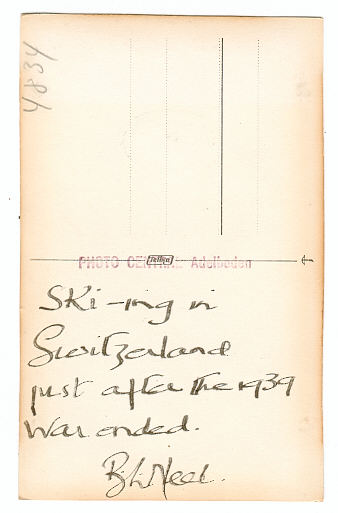 4834
PHOTO CENTRALE Adelboden
Ski-ing in
Switzerland
just after the 1939
War ended.